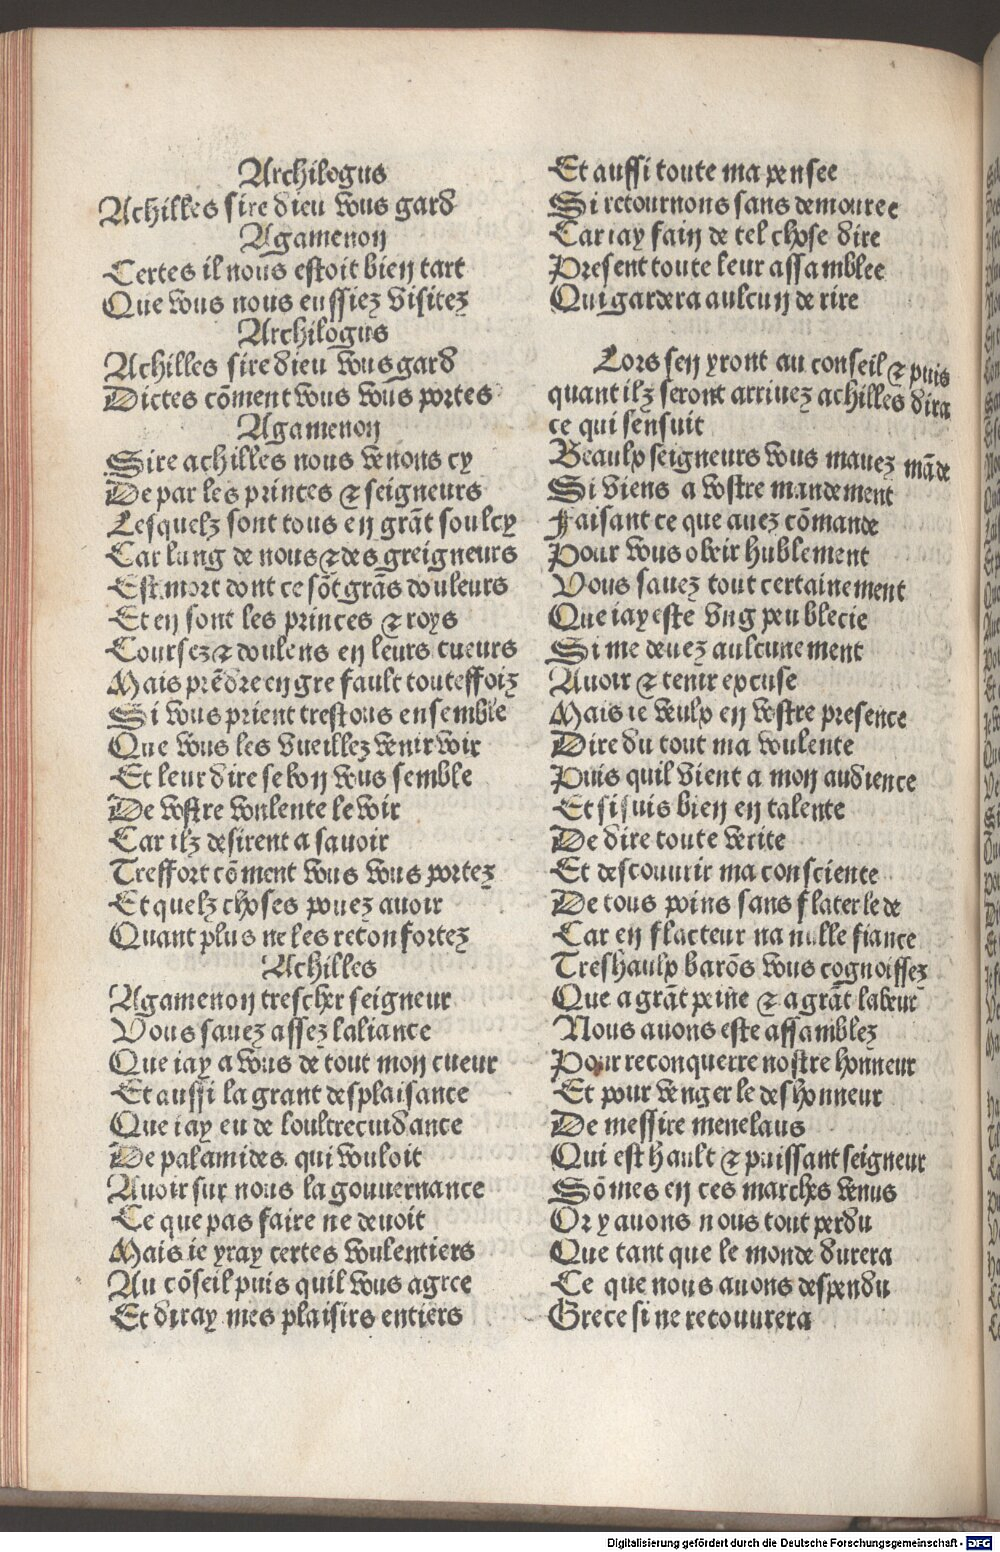 Archilogus
Achilles sire dieu vous gard
Agamenon
Certes il nous estoit bien tart
Que vous nous eussiez visitez
Archilogus
Achilles sire dieu vous gard
Dictes cōment vous vous portes
Agamenon
Sire achilles nous venons cy
De par les princes ⁊ seigneurs
Lesquelz sont tous en grāt soulcy
Car lung de nous ⁊ des greigneurs
Est mort dont ce sōt grās douleurs
Et en sont les princes ⁊ roys
Coursez ⁊ doulens en leurs cueurs
Mais prēdre en gre fault touteffoiz
Si vous prient trestous ensemble
Que vous les vueillez venir voir
Et leur dire se bon vous semble
De vostre voulente le voir
Car ilz desirent a savoir
Treffort cōment vous vous portez
Et quelz choses povez avoir
Quant plus ne les reconfortez
Achilles
Agamenon trescher seigneur
Vous savez assez laliance
Que iay a vous de tout mon cueur
Et aussi la grant desplaisance
Que iay eu de loultrecuidance
De palamides qui vouloit
Avoir sur nous la gouvernance
Ce que pas faire ne devoit
Mais ie yray certes voulentiers
Au cōseil puis quil vous agree
Et diray mes plaisirs entiers
Et aussi toute ma pensee
Si retournons sans demouree
Car iay fain de tel chose dire
Present toute leur assamblee
Qui gardera aulcun de rire
Lors sen yront au conseil ⁊ puis
quant ilz seront arriuez achilles dira
ce qui sensuit
Beaulx seigneurs vous mauez māde
Si viens a vostre mandement
Faisant ce que auez cōmande
Pour vous obeir hublement
Vous sauez tout certainement
Que iay este vng peu blecie
Si me deuez aulcunement
Auoir ⁊ tenir excuse
Mais ie veulx en vostre presence
Dire du tout ma voulente
Puis quil vient a mon audience
Et si suis bien en talente
De dire toute verite
Et descouurir ma consciente
De tous poins sans flaterlede
Car en flacteur na nulle fiance
Treshaulx barōs vous cognoissez
Que a grāt peine ⁊ a grāt labeur
Nous auons este assamblez
Pour reconquerre nostre honneur
Et pour venger le deshonneur
De messire menelaus
Qui est hault ⁊ puissant seigneur
Sōmes en ces marches venus
Or y auons nous tout perdu
Que tant que le monde durera
Ce que nous auons despendu
Grece si ne recouurera
Digitalisierung gefördert durch die Deutsche Forschungsgemeinschaft - DFG